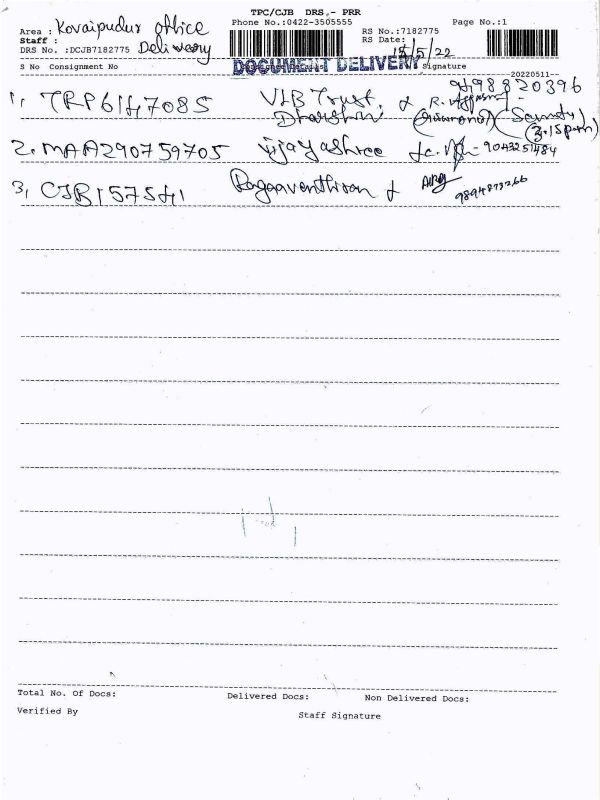 TPC/CJB DRS,- PRR
Area : Kovaipudur office Phone No.:0422-3505555 Page No.:1
Staff : RS No.:7182775
DRS No. :DCJB7182775 Delivery RS Date: 15/5/22
S No Consignment No DOCUMENT DELIVERY Signature
20220511--
9498820396
1, TRP6147085 VLB Trust, & R.
Dharshini Security
2. MAA290759705 Vijayashree 9043251484
3, CJB157541 Ragaaventhiran & 9894873266
Total No. Of Docs: Delivered Docs: Non Delivered Docs:
Verified By Staff Signature